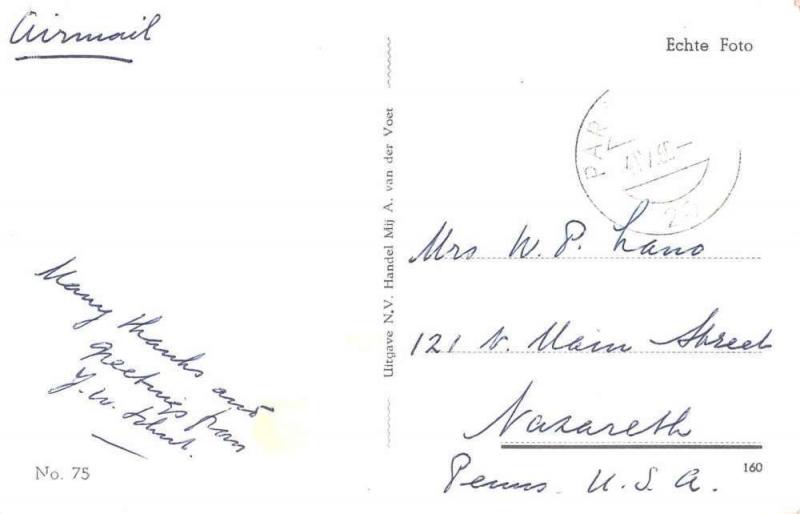 Airmail
Echte Foto
PAR
Uitgave N.V. Handel Mij A. van der Voet
Mrs W. P. Lano
121 N. Main Street
Nazareth
Penns. U.S.A.
Many thanks and
greetings from
Y. W.
No. 75
160